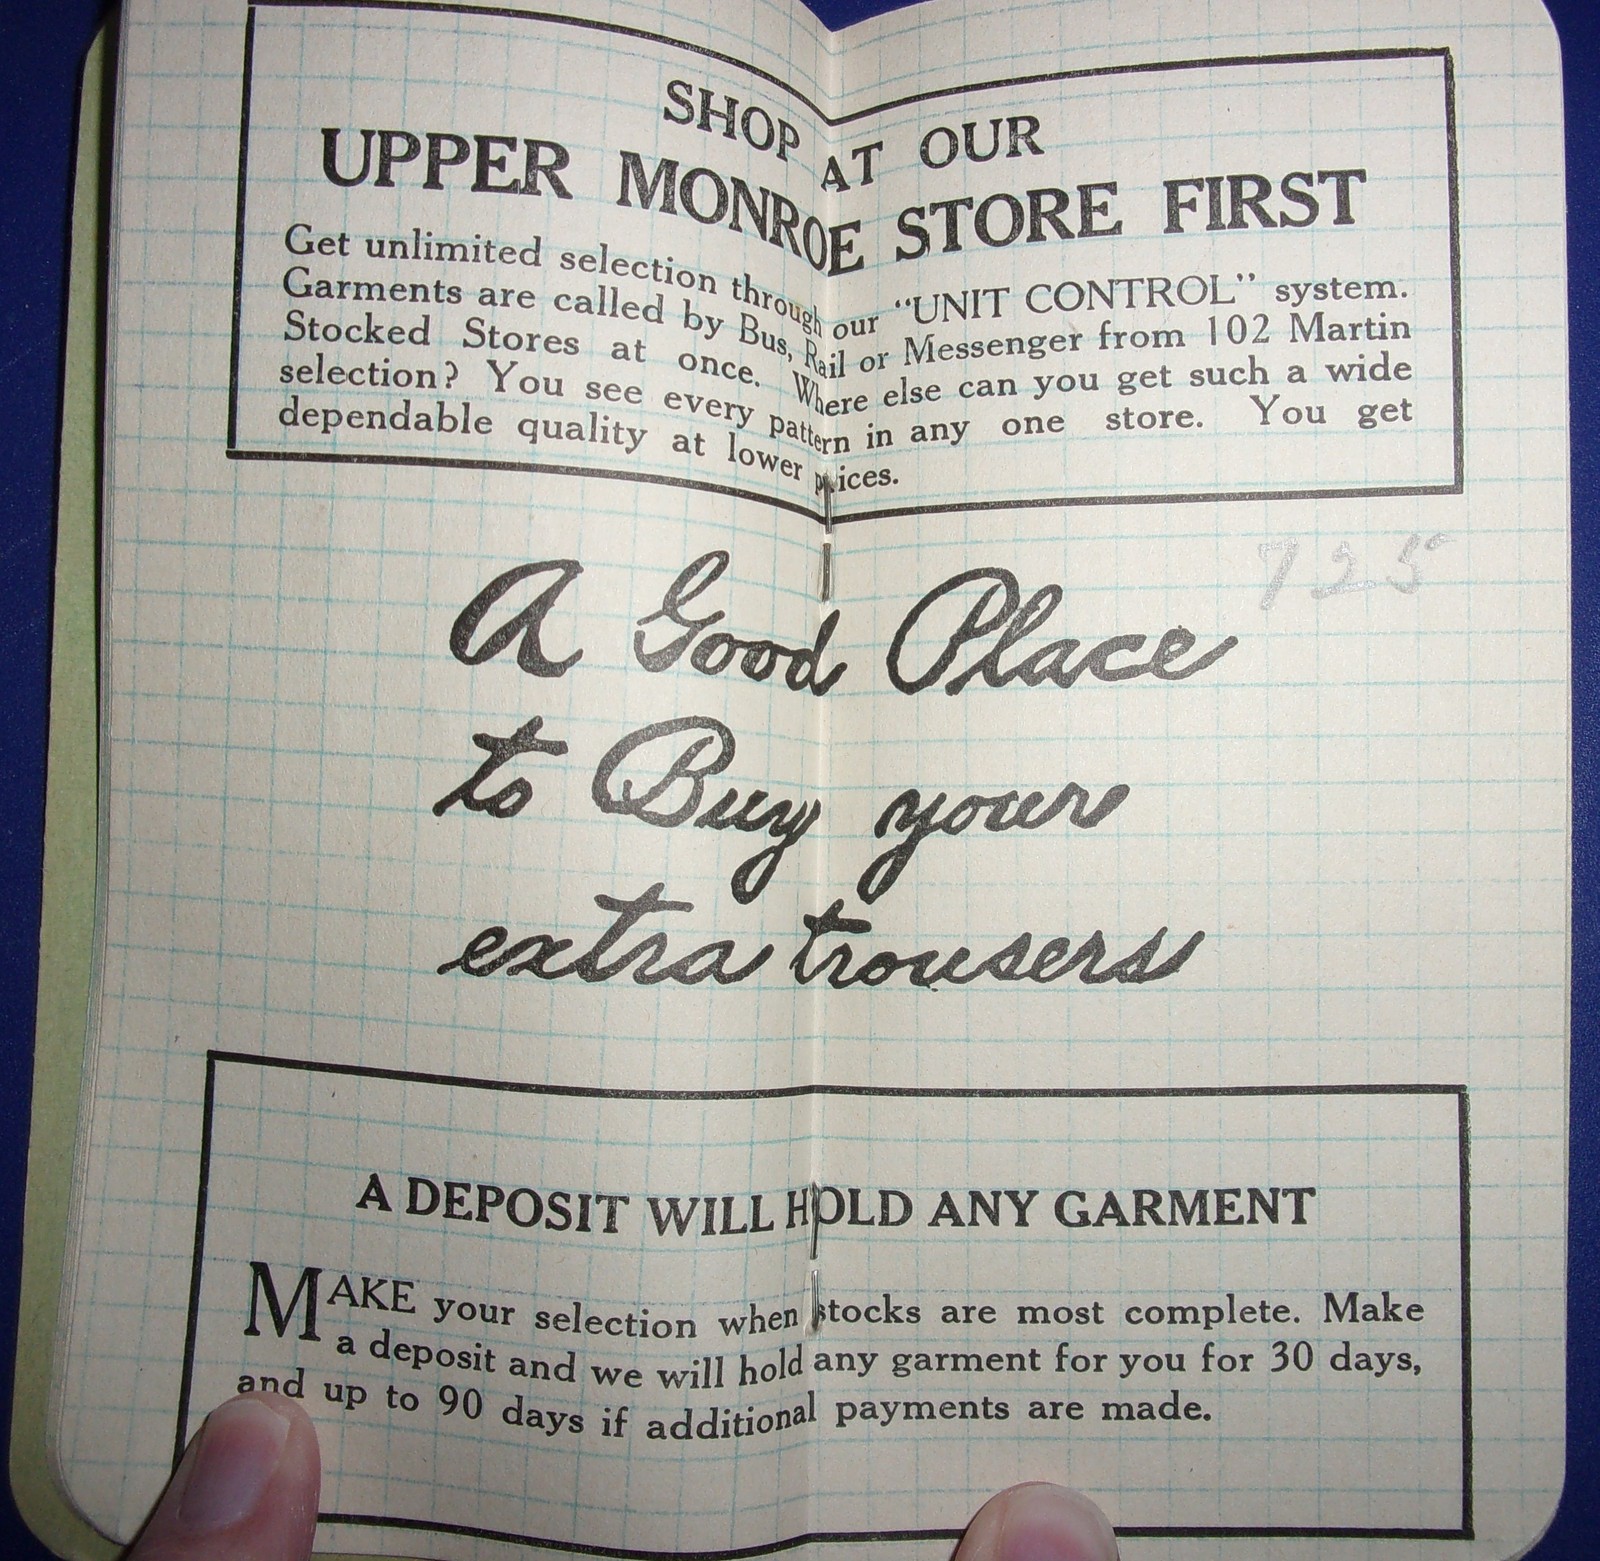 SHOP AT OUR
UPPER MONROE STORE FIRST
Get unlimited selection through our "UNIT CONTROL" system.
Garments are called by Bus, Rail or Messenger from 102 Martin
Stocked Stores at once. Where else can you get such a wide
selection? You see every pattern in any one store. You get
dependable quality at lower prices.
725
A Good Place
to Buy your
extra trousers
A DEPOSIT WILL HOLD ANY GARMENT
MAKE your selection when stocks are most complete. Make
a deposit and we will hold any garment for you for 30 days,
and up to 90 days if additional payments are made.